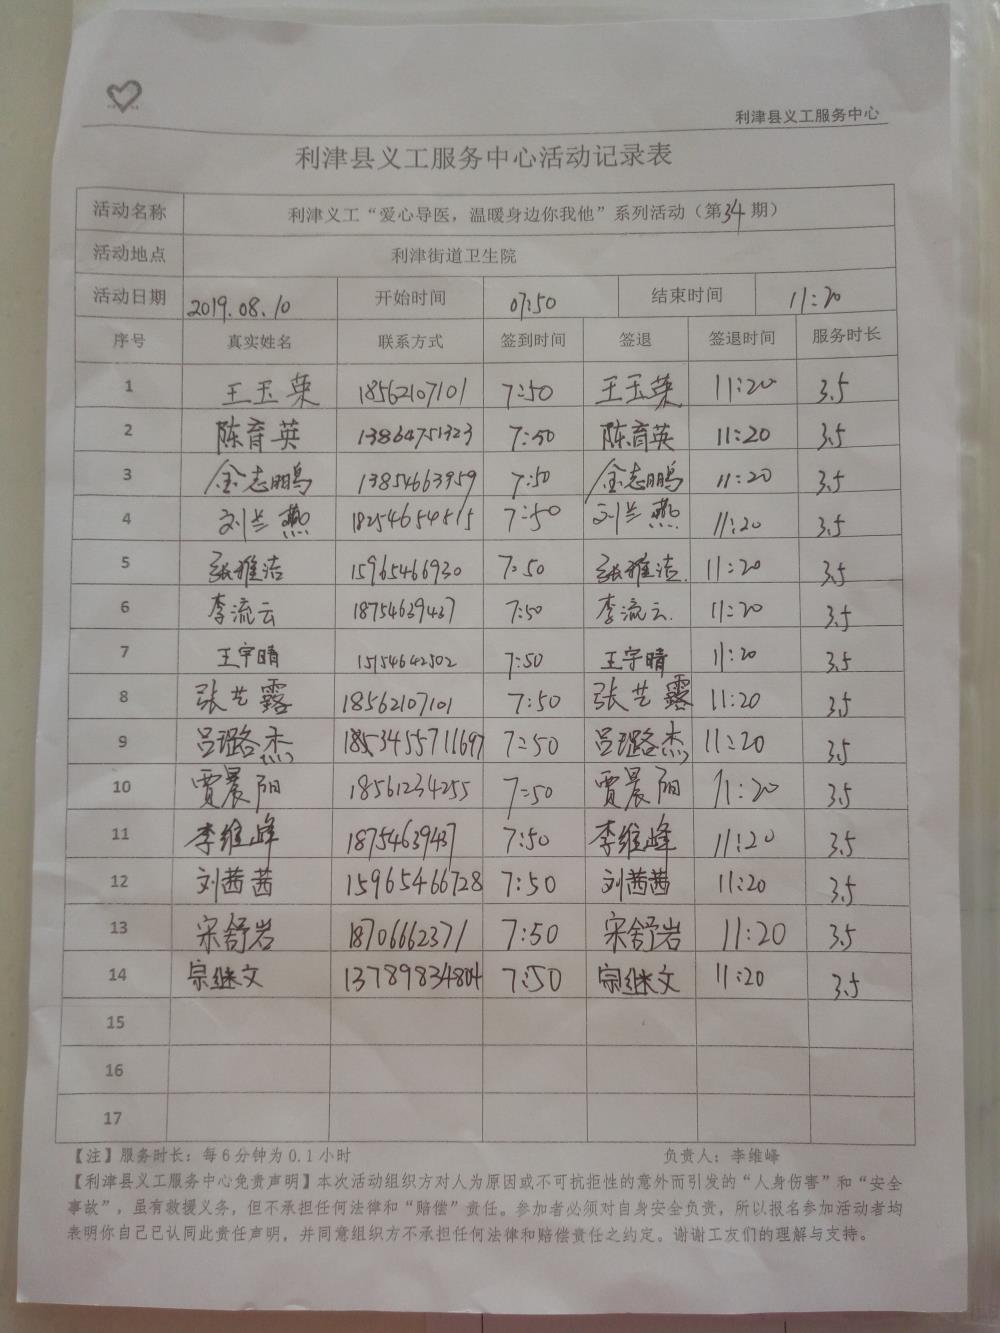 利津县义工服务中心
利津县义工服务中心活动记录表
活动名称 利津义工“爱心导医，温暖身边你我他”系列活动（第34期）
活动地点 利津街道卫生院
活动日期 2019.08.10 开始时间 07:50 结束时间 11:20
序号 真实姓名 联系方式 签到时间 签退 签退时间 服务时长
1 王玉荣 18562107101 7:50 王玉荣 11:20 3.5
2 陈育英 13864751323 7:50 陈育英 11:20 3.5
3 金志鹏 13854663959 7:50 金志鹏 11:20 3.5
4 刘兰燕 18254654515 7:50 刘兰燕 11:20 3.5
5 张雅洁 15965466930 7:50 张雅洁. 11:20 3.5
6 李流云 18754639437 7:50 李流云. 11:20 3.5
7 王宇晴 15154642502 7:50 王宇晴 11:20 3.5
8 张艺露 18562107101 7:50 张艺露 11:20 3.5
9 吕璐杰 7:50 吕璐杰 11:20 3.5
10 贾晨阳 18561234255 7:50 贾晨阳 11:20 3.5
11 李维峰 18754639437 7:50 李维峰 11:20 3.5
12 刘茜茜 15965466728 7:50 刘茜茜 11:20 3.5
13 宋舒岩 18706662371 7:50 宋舒岩 11:20 3.5
14 宗继文 13789834804 7:50 宗继文 11:20 3.5
15
16
17
【注】服务时长：每6分钟为0.1小时 负责人：李维峰
【利津县义工服务中心免责声明】本次活动组织方对人为原因或不可抗拒性的意外而引发的“人身伤害”和“安全
事故”，虽有救援义务，但不承担任何法律和“赔偿”责任。参加者必须对自身安全负责，所以报名参加活动者均
表明你自己已认同此责任声明，并同意组织方不承担任何法律和赔偿责任之约定。谢谢工友们的理解与支持。